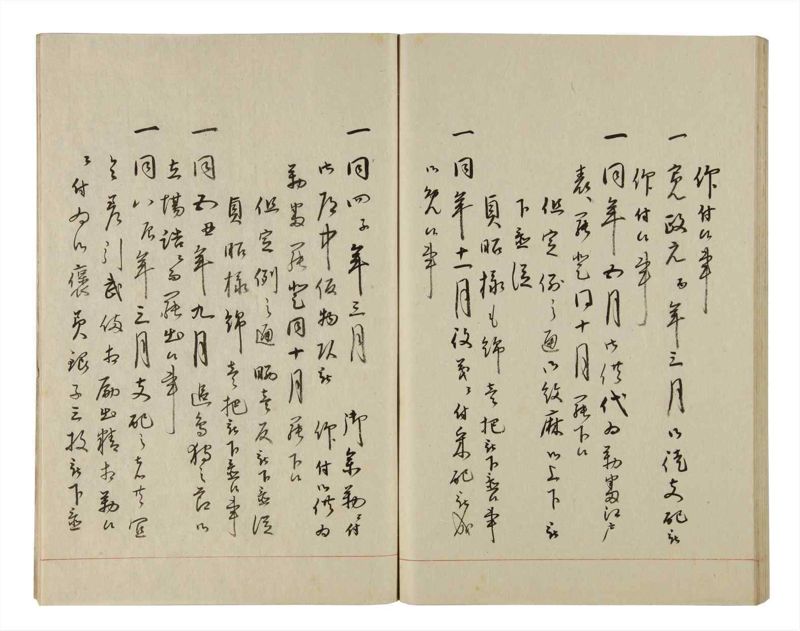 仰付候事
一寛政元酉年三月御徒支配被
仰付候事
一同年五月御供代為勤番江戸
表江罷登同十月罷下候
但定例之通御紋麻御上下被
下置候
貞昭様も錦壱把被下置候事
一同年十一月役義被付兼配
御免候事
一同四子年三月 御参勤ニ付
御居中仮物頭被 仰付御供為
勤番罷登同十月罷下候
但定例之通晒壱反被下置候
貞昭様錦壱把被下置候事
一同五丑年九月追鳥狩之節御
立場詰ニ而罷出候事
一同八辰年三月支配之者共
差引武備相励出精相勤候
ニ付為御褒美銀子三枚被下置